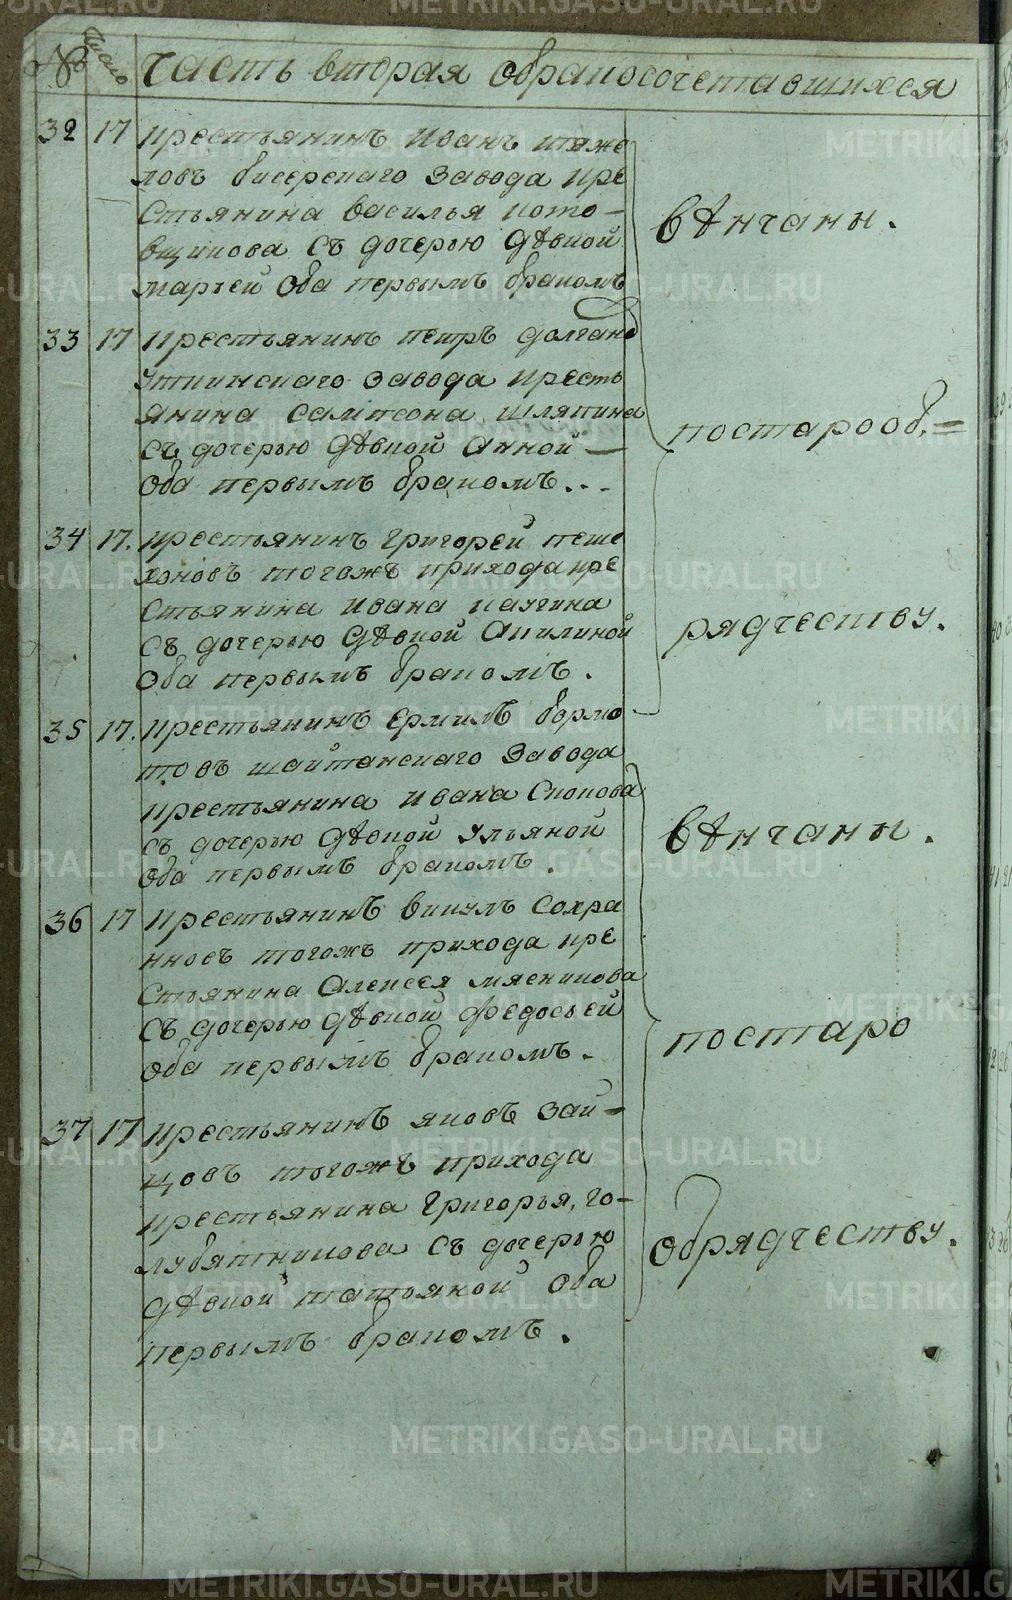 № Число Часть вторая обракосочетавшихся
32 17 крестьянинъ Иванъ тяже
ловъ бисерскаго завода кре
стьянина Василья кото-
вщикова съ дочерью дѣвкой
марьей оба первымъ бракомъ
Вѣнчаны.
33 17 крестьянинъ петръ долгано
уткинскаго завода кресть
янина сампсона шляпина
съ дочерью дѣвкой Анной —
оба первымъ бракомъ...
постарооб.=
34 17. крестьянинъ григорей пеше
хоновъ тогожъ прихода кре
стьянина ивана
съ дочерью дѣвкой Акилиной
оба первымъ бракомъ.
рядчеству.
35 17. крестьянинъ ермилъ бормо
товъ шайтанскаго завода
крестьянина ивана Скопова
съ дочерью дѣвкой ульяной
оба первымъ бракомъ.
Вѣнчаны.
36 17 крестьянинъ викулъ сохра
нновъ тогожъ прихода кре
стьянина Алексея мясникова
съ дочерью дѣвкой федосьей
оба первымъ бракомъ.
постаро
37 17 крестьянинъ яковъ зай-
цовъ тогожъ прихода
крестьянина григорья, го-
лубятникова съ дочерью
дѣвкой татьяной оба
первымъ бракомъ.
обрядчеству.
METRIKI.GASO-URAL.RU